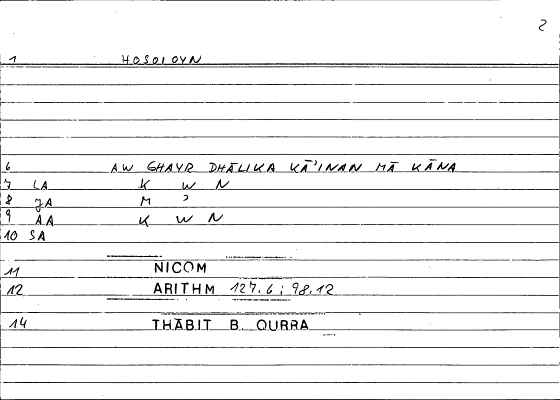 2
1 HOSOIOYN
6 AW GHAYR DHĀLIKA KĀ'INAN MĀ KĀNA
7 LA K W N
8 JA M '
9 AA K W N
10 SA
11 NICOM
12 ARITHM 127.6; 98.12
14 THĀBIT B. QURRA